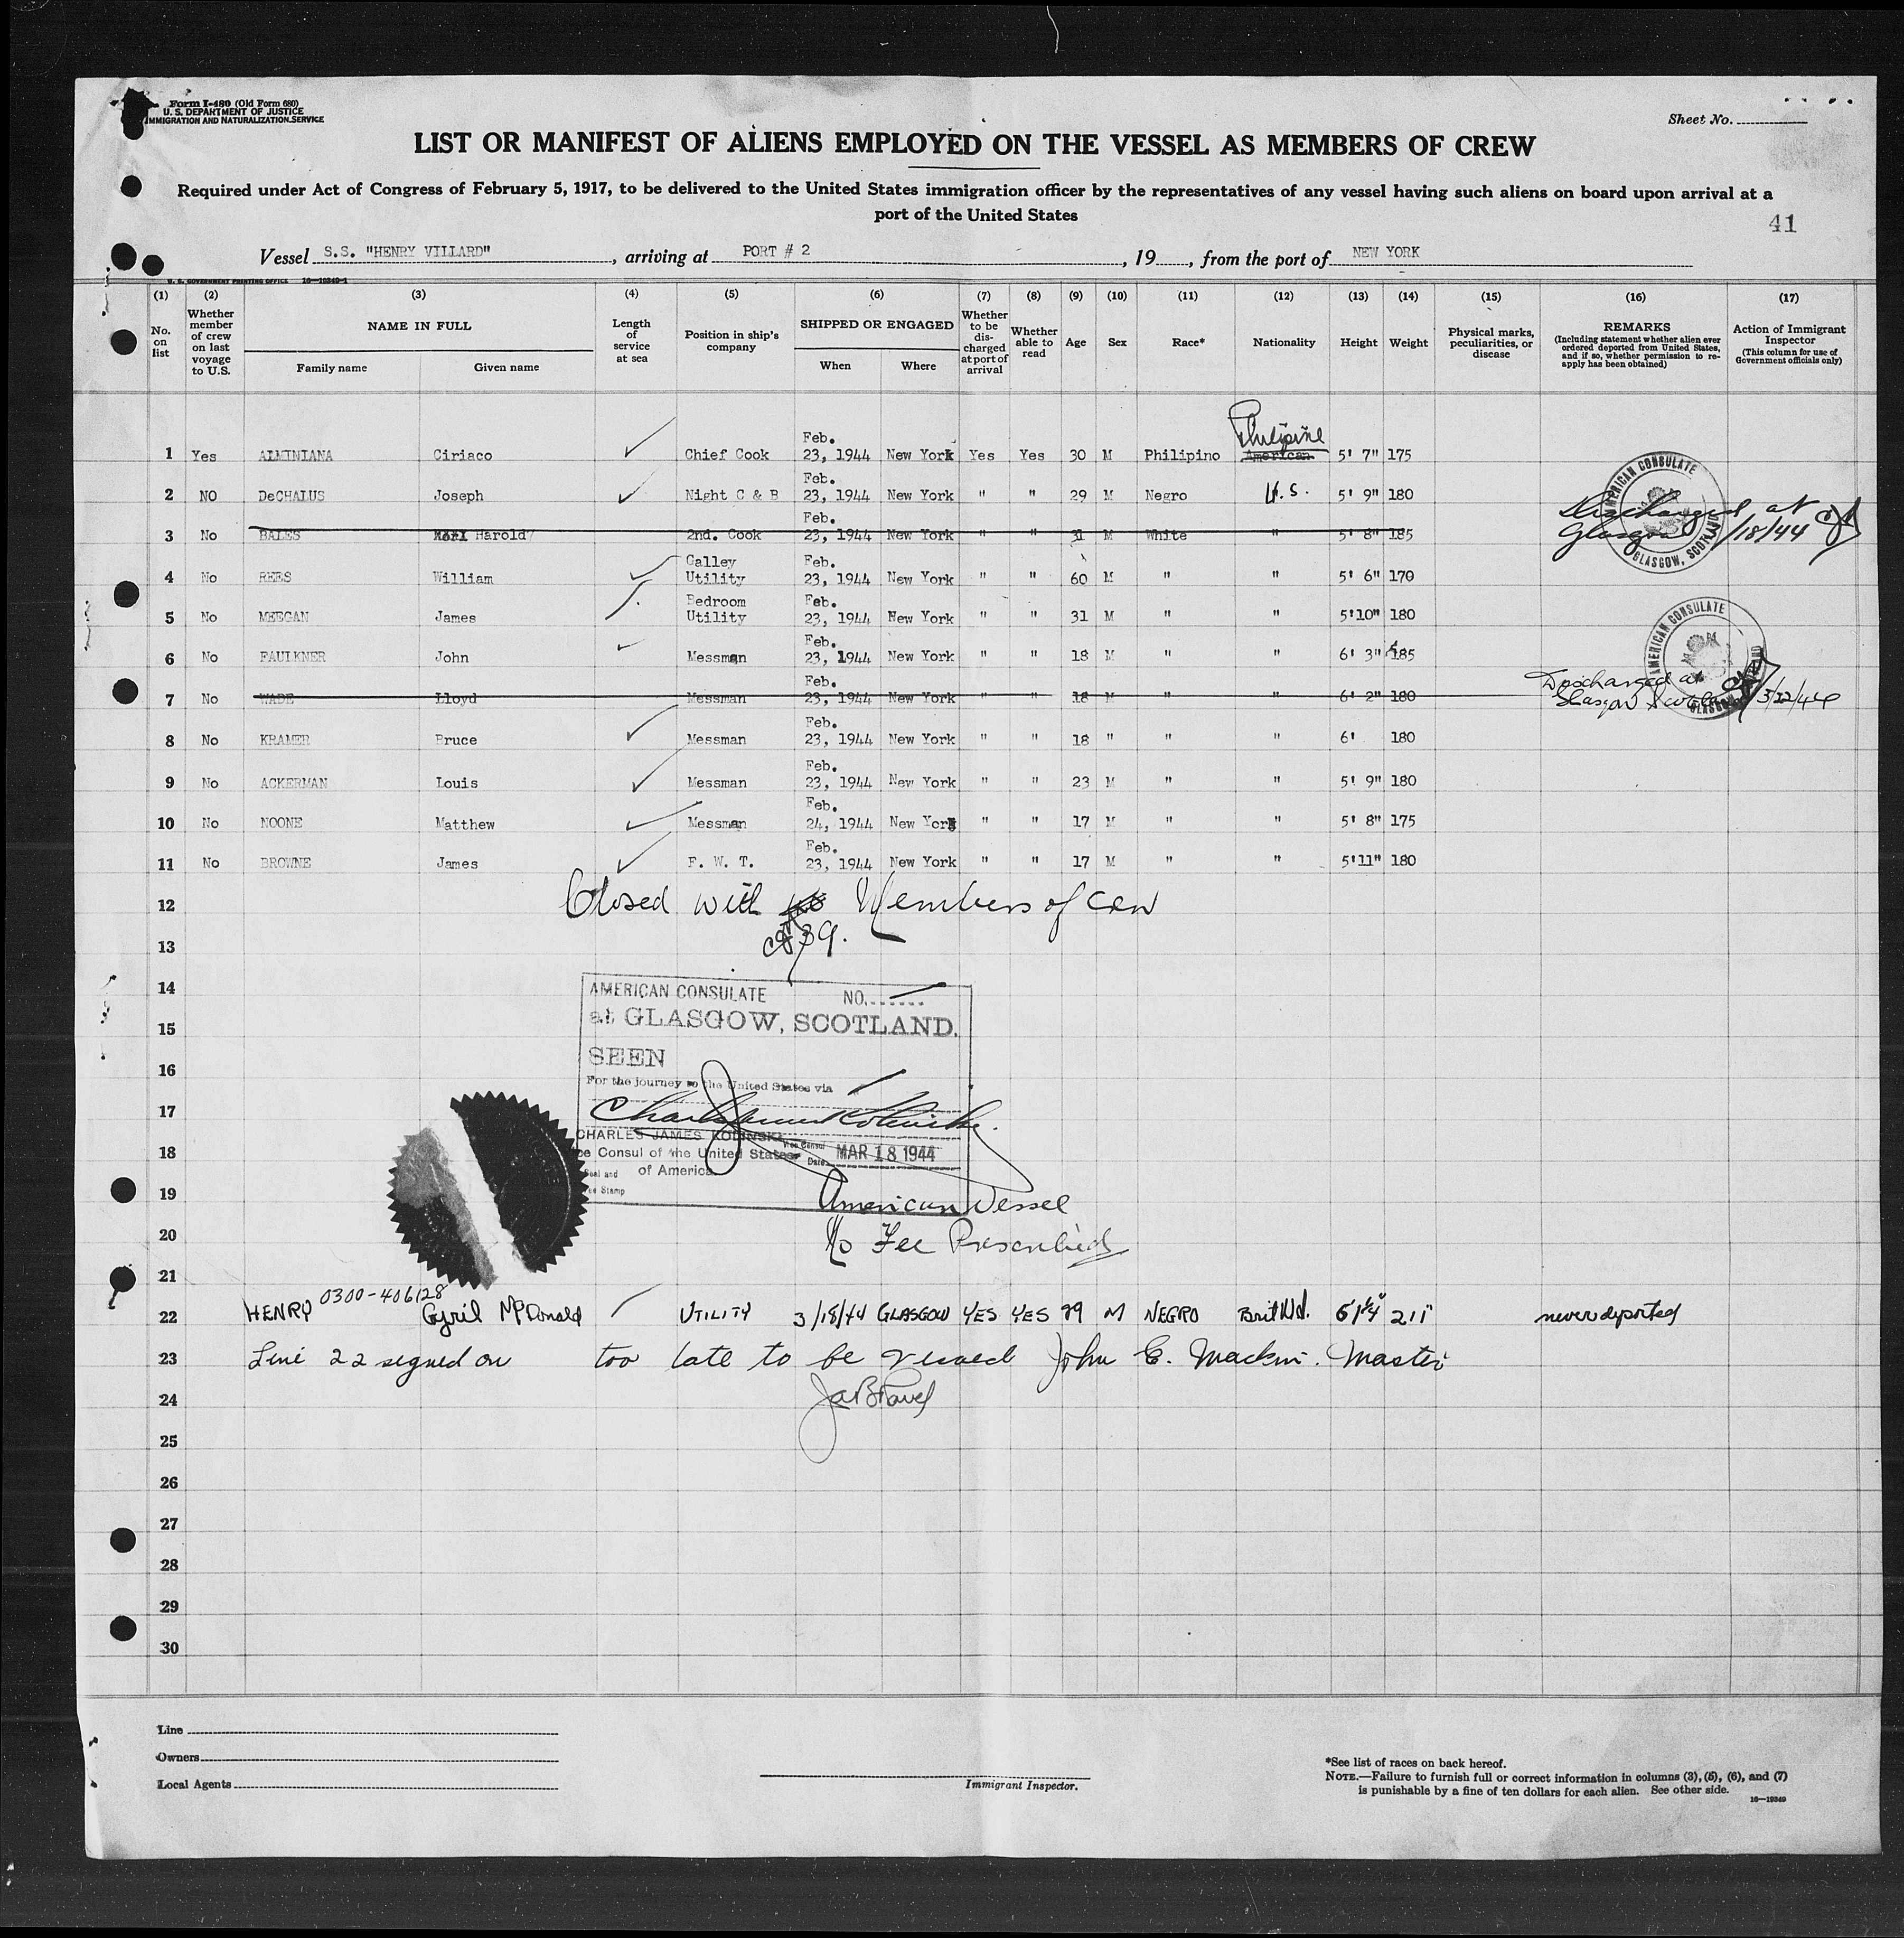 Form I-480 (Old Form 680)
U. S. DEPARTMENT OF JUSTICE
IMMIGRATION AND NATURALIZATION SERVICE
Sheet No.
LIST OR MANIFEST OF ALIENS EMPLOYED ON THE VESSEL AS MEMBERS OF CREW
Required under Act of Congress of February 5, 1917, to be delivered to the United States immigration officer by the representatives of any vessel having such aliens on board upon arrival at a
port of the United States
41
Vessel S.S. "HENRY VILLARD", arriving at PORT # 2, 19, from the port of NEW YORK
U. S. GOVERNMENT PRINTING OFFICE 16—19349-1
(1) (2) (3) (4) (5) (6) (7) (8) (9) (10) (11) (12) (13) (14) (15) (16) (17)
No. on list
Whether member of crew on last voyage to U.S.
NAME IN FULL
Family name Given name
Length of service at sea
Position in ship's company
SHIPPED OR ENGAGED
When Where
Whether to be discharged at port of arrival
Whether able to read
Age
Sex
Race*
Nationality
Height
Weight
Physical marks, peculiarities, or disease
REMARKS
(Including statement whether alien ever ordered deported from United States, and if so, whether permission to reapply has been obtained)
Action of Immigrant Inspector
(This column for use of Government officials only)
Philipine
1 Yes ALMINIANA Ciriaco Chief Cook Feb. 23, 1944 New York Yes Yes 30 M Philipino American 5' 7" 175
2 NO DeCHALUS Joseph Night C & B Feb. 23, 1944 New York " " 29 M Negro U.S. 5' 9" 180
3 No BALES Harold 2nd. Cook Feb. 23, 1944 New York " " 31 M White " 5' 8" 185 Discharged at Glasgow /18/44
AMERICAN CONSULATE GLASGOW, SCOTLAND
4 No REES William Galley Utility Feb. 23, 1944 New York " " 60 M " " 5' 6" 170
5 No MEEGAN James Bedroom Utility Feb. 23, 1944 New York " " 31 M " " 5'10" 180
6 No FAULKNER John Messman Feb. 23, 1944 New York " " 18 M " " 6' 3" 185
AMERICAN CONSULATE GLASGOW
7 No WADE Lloyd Messman Feb. 23, 1944 New York " " 18 M " " 6' 2" 180 Discharged at Glasgow Scotland 3/22/44
8 No KRAMER Bruce Messman Feb. 23, 1944 New York " " 18 " " " 6' 180
9 No ACKERMAN Louis Messman Feb. 23, 1944 New York " " 23 M " " 5' 9" 180
10 No NOONE Matthew Messman Feb. 24, 1944 New York " " 17 M " " 5' 8" 175
11 No BROWNE James F. W. T. Feb. 23, 1944 New York " " 17 M " " 5'11" 180
12 Closed with Members of crew
13 39.
14 AMERICAN CONSULATE NO.
15 at GLASGOW, SCOTLAND.
SEEN
16 For the journey to the United States via
17 Charles James Kolinski
CHARLES JAMES KOLINSKI
18 Vice Consul of the United States of America
Vice Consul
Date MAR 18 1944
Seal and
Fee Stamp
19 American Vessel
20 No Fee Prescribed
21 0300-406128
22 HENRY Cyril McDonald UTILITY 3/18/44 GLASGOW YES YES 29 M NEGRO Brit W.I. 6'1¼" 211 never deported
23 Line 22 signed on too late to be visaed John E. Mackin. Master
24
25
26
27
28
29
30
Line
Owners
Local Agents
Immigrant Inspector.
*See list of races on back hereof.
NOTE.—Failure to furnish full or correct information in columns (3), (5), (6), and (7)
is punishable by a fine of ten dollars for each alien. See other side.
16—19349